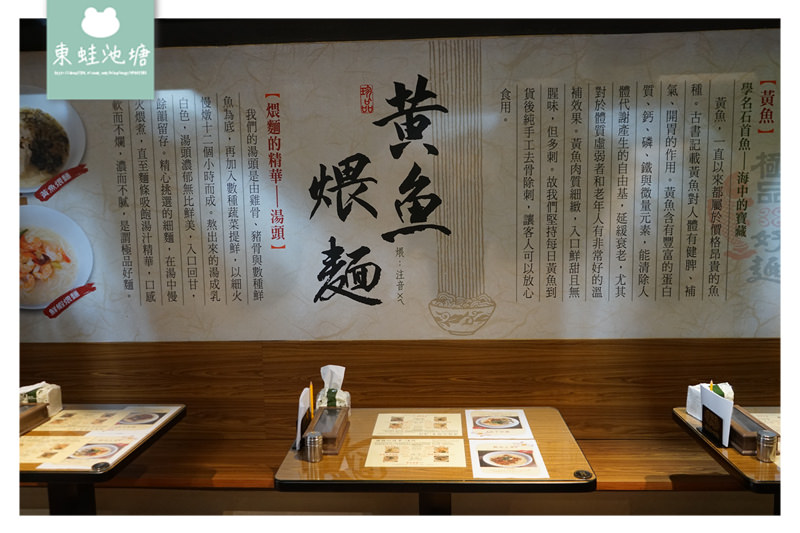 東蛙池塘
【黃魚】
學名石首魚——海中的寶藏
黃魚，一直以來都屬於價格昂貴的魚
種。古書記載黃魚對人體有健脾、補
氣、開胃的作用。黃魚含有豐富的蛋白
質、鈣、磷、鐵與微量元素，能清除人
體代謝產生的自由基，延緩衰老，尤其
對於體質虛弱者和老年人有非常好的溫
補效果。黃魚肉質細緻，入口鮮甜且無
腥味，但多刺。故我們堅持每日黃魚到
貨後純手工去骨除刺，讓客人可以放心
食用。
極品
好麵
珍品
黃魚
煨麵
煨：注音ㄨㄟ
【煨麵的精華——湯頭】
我們的湯頭是由雞骨、豬骨與數種鮮
魚為底，再加入數種蔬菜提鮮，以細火
慢燉十二個小時而成。熬出來的湯成乳
白色，湯頭濃郁無比鮮美，入口回甘，
餘韻留存。精心挑選的細麵，在湯中慢
火煨煮，直至麵條吸飽湯汁精華，口感
軟而不爛，濃而不膩，是謂極品好麵。
黃魚煨麵
鮮蝦煨麵